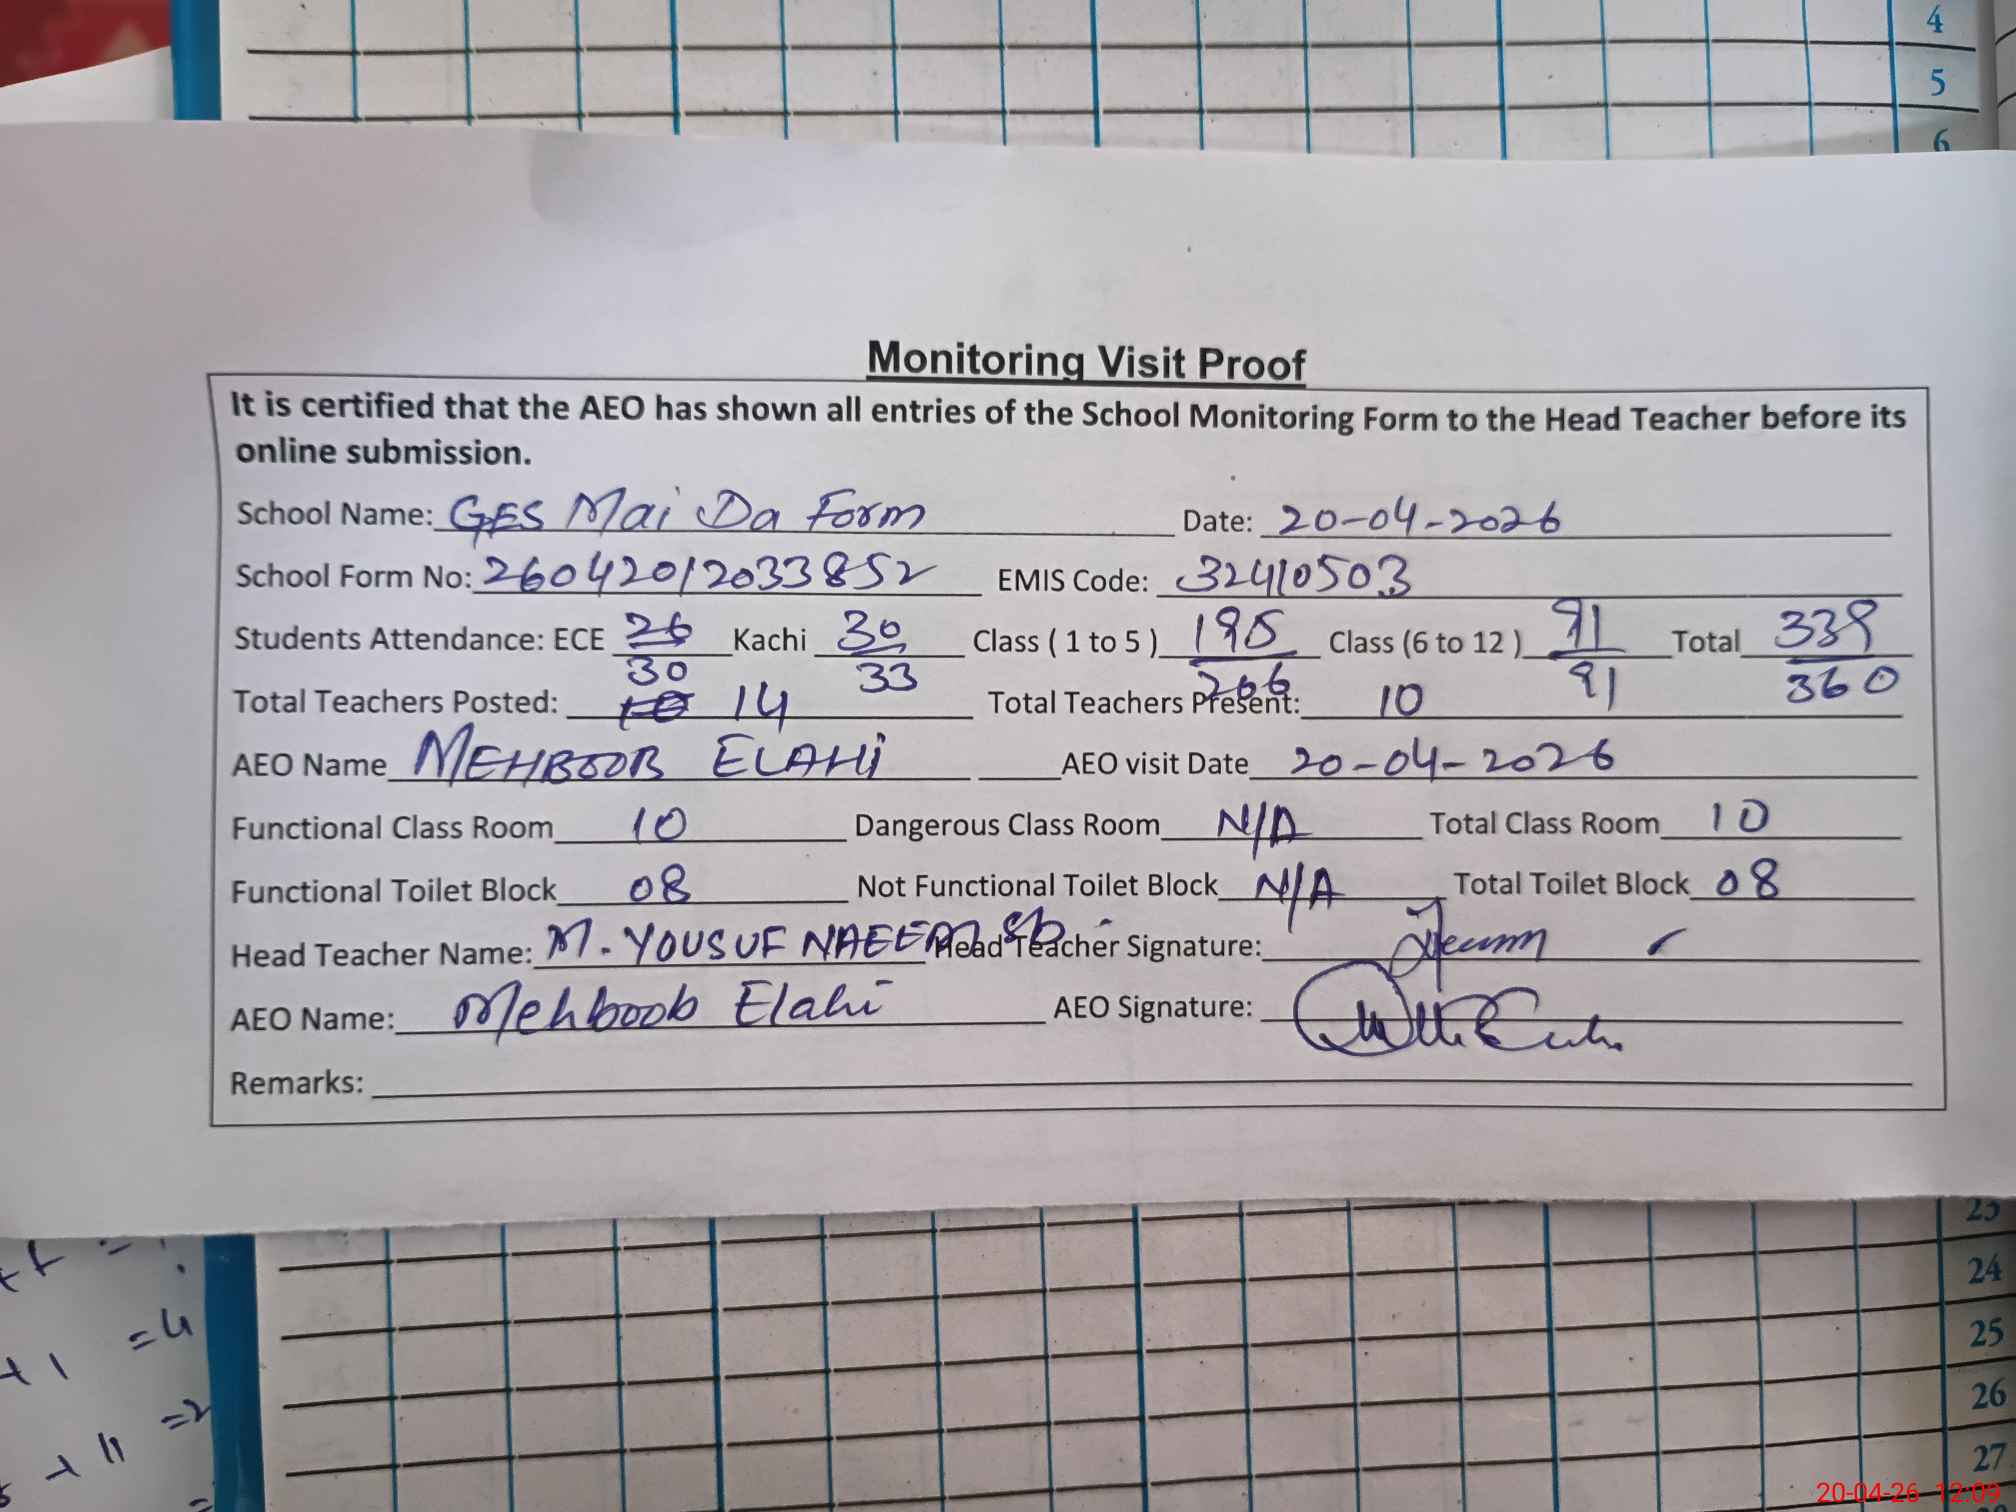 4
5
6
Monitoring Visit Proof
It is certified that the AEO has shown all entries of the School Monitoring Form to the Head Teacher before its
online submission.
School Name: GES Mai Da Form Date: 20-04-2026
School Form No: 26042012033852 EMIS Code: 32410503
Students Attendance: ECE 26/30 Kachi 30/33 Class ( 1 to 5 ) 195/206 Class (6 to 12 ) 91/91 Total 339/360
Total Teachers Posted: 14 Total Teachers Present: 10
AEO Name MEHBOOB ELAHi AEO visit Date 20-04-2026
Functional Class Room 10 Dangerous Class Room N/A Total Class Room 10
Functional Toilet Block 08 Not Functional Toilet Block N/A Total Toilet Block 08
Head Teacher Name: M. YOUSUF NAEEM Sb Head Teacher Signature:
AEO Name: Mehboob Elahi AEO Signature:
Remarks:
23
24
25
26
27
=4
+1
+ 11 =2
20-04-26 12:09